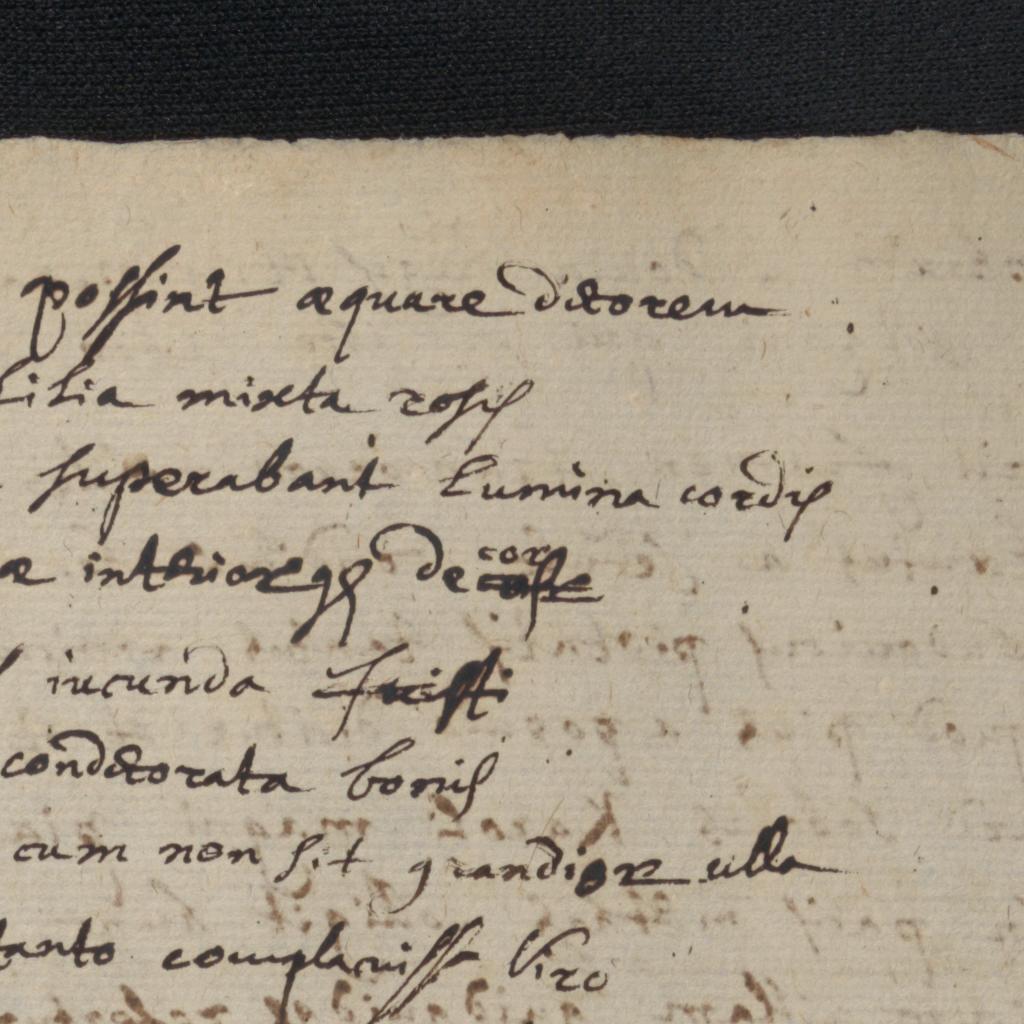 possint æquare decorem
Lilia mixta rosis
superabant Lumina cordis
æ interiorque decor
iucunda
condecorata bonis
cum non sit grandior ulla
tanto complacuisse Viro